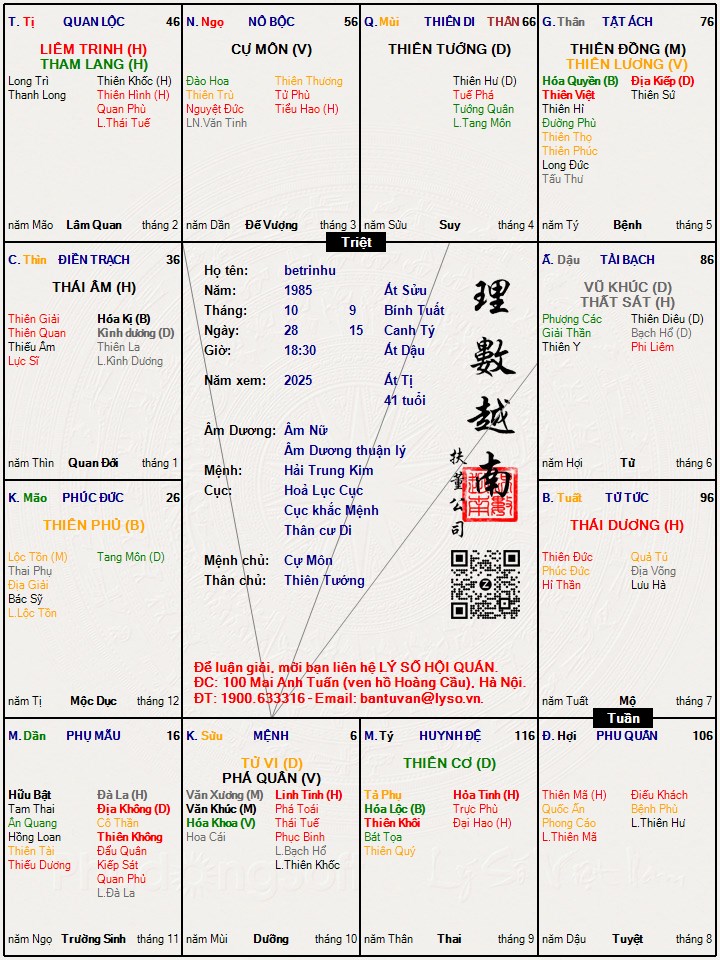 T. Tị QUAN LỘC 46
LIÊM TRINH (H)
THAM LANG (H)
Long Trì Thiên Khốc (H)
Thanh Long Thiên Hình (H)
Quan Phù
L.Thái Tuế
năm Mão Lâm Quan tháng 2
N. Ngọ NÔ BỘC 56
CỰ MÔN (V)
Đào Hoa Thiên Thương
Thiên Trù Tử Phù
Nguyệt Đức Tiểu Hao (H)
LN.Văn Tinh
năm Dần Đế Vượng tháng 3
Q. Mùi THIÊN DI THÂN 66
THIÊN TƯỚNG (D)
Thiên Hư (D)
Tuế Phá
Tướng Quân
L.Tang Môn
năm Sửu Suy tháng 4
G. Thân TẬT ÁCH 76
THIÊN ĐỒNG (M)
THIÊN LƯƠNG (V)
Hóa Quyền (B) Địa Kiếp (D)
Thiên Việt Thiên Sứ
Thiên Hỉ
Đường Phù
Thiên Thọ
Thiên Phúc
Long Đức
Tấu Thư
năm Tý Bệnh tháng 5
Triệt
C. Thìn ĐIỀN TRẠCH 36
THÁI ÂM (H)
Thiên Giải Hóa Kị (B)
Thiên Quan Kình dương (D)
Thiếu Âm Thiên La
Lực Sĩ L.Kình Dương
năm Thìn Quan Đới tháng 1
Họ tên: betrinhu
Năm: 1985 Ất Sửu
Tháng: 10 9 Bính Tuất
Ngày: 28 15 Canh Tý
Giờ: 18:30 Ất Dậu
Năm xem: 2025 Ất Tị
41 tuổi
Âm Dương: Âm Nữ
Âm Dương thuận lý
Mệnh: Hải Trung Kim
Cục: Hoả Lục Cục
Cục khắc Mệnh
Thân cư Di
Mệnh chủ: Cự Môn
Thân chủ: Thiên Tướng
理數越南
扶董公司
Để luận giải, mời bạn liên hệ LÝ SỐ HỘI QUÁN.
ĐC: 100 Mai Anh Tuấn (ven hồ Hoàng Cầu), Hà Nội.
ĐT: 1900.633316 - Email: bantuvan@lyso.vn.
Ấ. Dậu TÀI BẠCH 86
VŨ KHÚC (D)
THẤT SÁT (H)
Phượng Các Thiên Diêu (D)
Giải Thần Bạch Hổ (D)
Thiên Y Phi Liêm
năm Hợi Tử tháng 6
K. Mão PHÚC ĐỨC 26
THIÊN PHỦ (B)
Lộc Tồn (M) Tang Môn (D)
Thai Phụ
Địa Giải
Bác Sỹ
L.Lộc Tồn
năm Tị Mộc Dục tháng 12
B. Tuất TỬ TỨC 96
THÁI DƯƠNG (H)
Thiên Đức Quả Tú
Phúc Đức Địa Võng
Hỉ Thần Lưu Hà
năm Tuất Mộ tháng 7
Tuần
M. Dần PHỤ MẪU 16
Hữu Bật Đà La (H)
Tam Thai Địa Không (D)
Ân Quang Cô Thần
Hồng Loan Thiên Không
Thiên Tài Đẩu Quân
Thiếu Dương Kiếp Sát
Quan Phủ
L.Đà La
năm Ngọ Trường Sinh tháng 11
K. Sửu MỆNH 6
TỬ VI (D)
PHÁ QUÂN (V)
Văn Xương (M) Linh Tinh (H)
Văn Khúc (M) Phá Toái
Hóa Khoa (V) Thái Tuế
Hoa Cái Phục Binh
L.Bạch Hổ
L.Thiên Khốc
năm Mùi Dưỡng tháng 10
M. Tý HUYNH ĐỆ 116
THIÊN CƠ (D)
Tả Phụ Hỏa Tinh (H)
Hóa Lộc (B) Trực Phù
Thiên Khôi Đại Hao (H)
Bát Tọa
Thiên Quý
năm Thân Thai tháng 9
Đ. Hợi PHU QUÂN 106
Thiên Mã (H) Điếu Khách
Quốc Ấn Bệnh Phù
Phong Cáo L.Thiên Hư
L.Thiên Mã
năm Dậu Tuyệt tháng 8